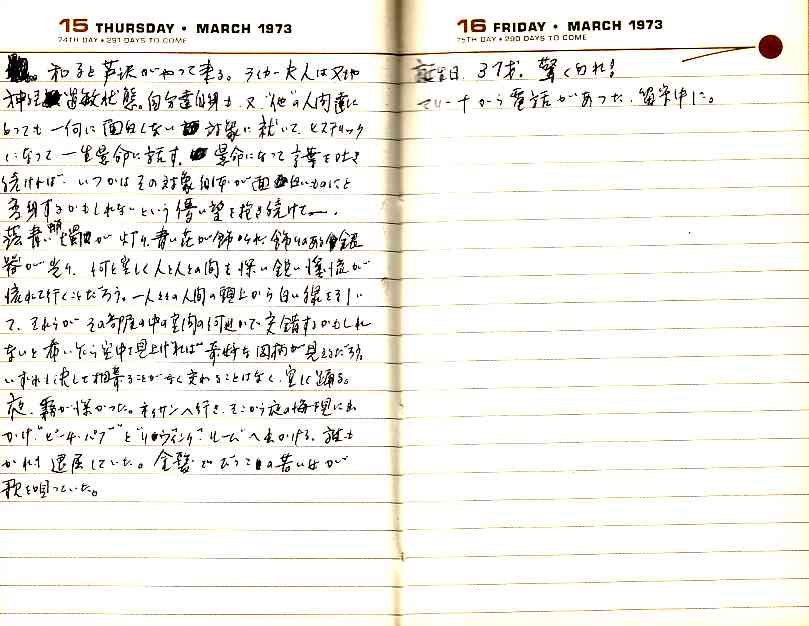 15 THURSDAY • MARCH 1973
74TH DAY • 291 DAYS TO COME
和子と芦沢がやって来る。ライカー夫人は又もや
神経過敏状態。自分達自身も、又"他"の人間達に
とっても一向に面白くない対象に就いて、ヒステリック
になって一生懸命に話す。懸命になって言葉を吐き
続ければ、いつかはその対象自体が面白いものにと
変身するかもしれないという儚い望を抱き続けて—.
蒼青い蠟燭が灯り、青い花が飾られ、飾りのある銀
器が光り、何と空しく人と人との間を深い鋭い
流れて行くことだろう。一人一人の人間の頭上から白い線を引い
て、それらがその部屋の中の空間の何処かで交錯するかもしれ
ないと希いながら空中を見上げれば奇妙な図柄が見えるだろう。
いずれも決して相寄ることがなく交わることはなく、空に踊る。
夜、霧が深かった。ネイサンへ行き、そこから夜の海を見に出
かけ、"ビーチ・パブ"と"リヴィング・ルーム"へ出かける。誰も
かれも退屈していた。金髪でびっこの若い女が
歌を唄っていた。
16 FRIDAY • MARCH 1973
75TH DAY • 290 DAYS TO COME
誕生日、37才。驚くなかれ!
マリーナから電話があった、留守中に。